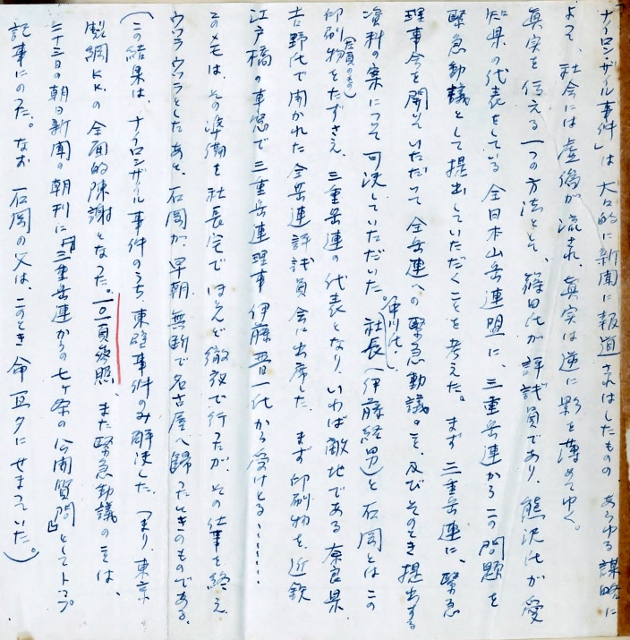 ナイロンザイル事件」は大々的に新聞に報道されはしたものの あらゆる謀略に
よって、社会には虚偽が流され、真実は逆に影を薄めてゆく。
真実を伝える一つの方法として、篠田氏が評議員であり、熊沢氏が愛
知県の代表をしている全日本山岳連盟に、三重岳連からこの問題を
緊急動議として提出していただくことを考えた。まず三重岳連に、緊急
理事会を開いていただいて全岳連への緊急動議のこと、及びそのとき提出する
資料の案について可決していただいた。社長(伊藤経男)と石岡とはこの
(中川氏、)
印刷物をたずさえ、三重岳連の代表となり、いわば敵地である奈良県、
(会員のもの)
吉野で開かれた全岳連評議員会に出席した。まず印刷物を近鉄
江戸橋の車窓で三重岳連理事伊藤晋一氏から受けとる……
このメモは、その準備を社長宅でほとんど徹夜で行ったが、その仕事を終え
ウツラウツラとしたあと、石岡が、早朝、無断で名古屋へ帰ったときのものである。
(この結果は、ナイロンザイル事件のうち、東壁事件のみ解決した。つまり、東京
製綱KKの全面的陳謝となった。一〇一頁参照、また緊急動議のことは、
二十三日の朝日新聞の朝刊に『三重岳連からの七ヶ条の公開質問』としてトップ
記事にのった。なお 石岡の父は、このとき命旦夕にせまっていた。)